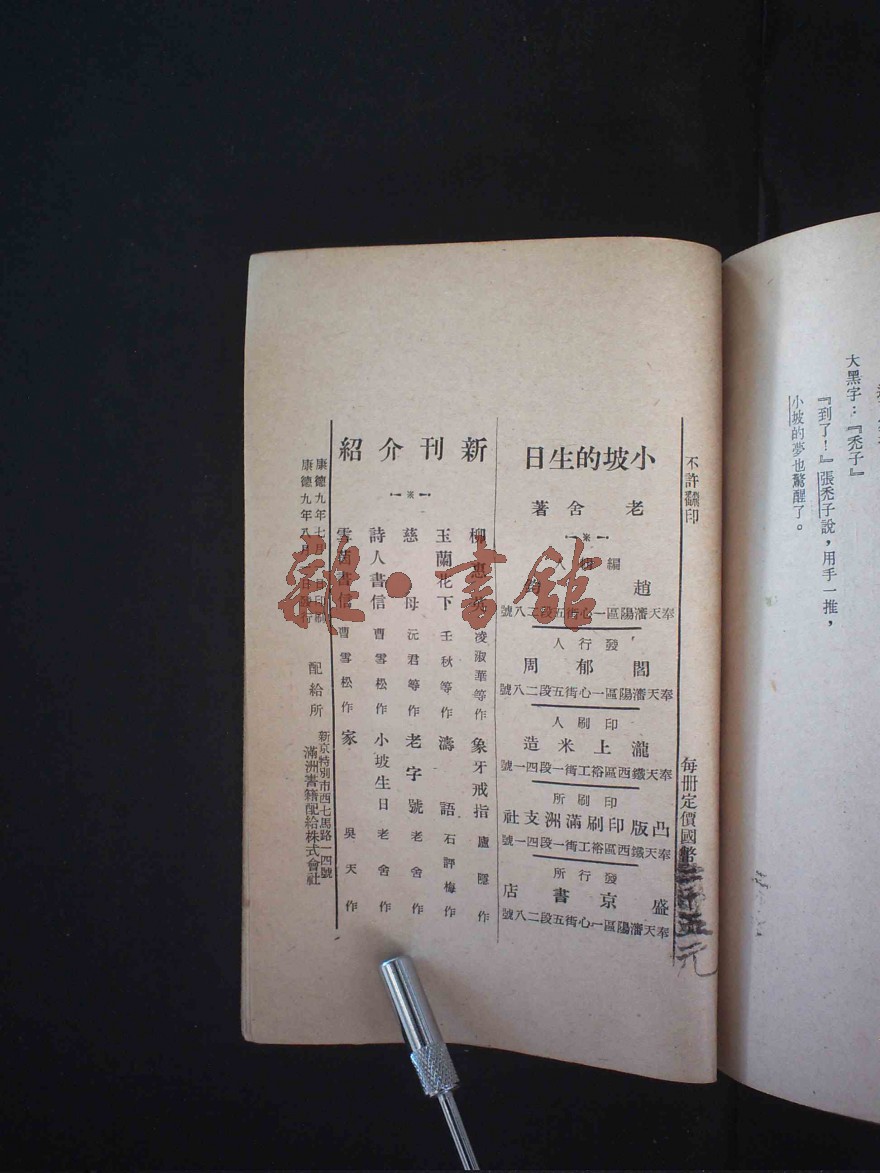 大黑字：『禿子』
『到了！』張禿子說，用手一推，
小坡的夢也驚醒了。
不許翻印
每冊定價國幣
元
小坡的生日
老舍著
編輯人
趙
奉天瀋陽區一心街五段二八號
發行人
閻郁周
奉天瀋陽區一心街五段二八號
印刷人
瀧上米造
奉天鐵西區裕工街一段四一號
印刷所
凸版印刷滿洲支社
奉天鐵西區裕工街一段四一號
發行所
盛京書店
奉天瀋陽區一心街五段二八號
新刊介紹
柳惠英 凌淑華等作
象牙戒指 廬隱作
玉蘭花下 壬秋等作
濤語 石評梅作
慈母 沅君等作
老字號 老舍作
詩人書信 曹雪松作
小坡生日 老舍作
雲茵書信 曹雪松作
家 吳天作
康德九年七月 日印刷
康德九年八月 日發行
配給所
新京特別市西七馬路一四號
滿洲書籍配給株式會社
雜·書館